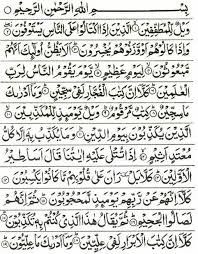 بِسْمِ اللهِ الرَّحْمٰنِ الرَّحِيْمِ
وَيْلٌ لِّلْمُطَفِّفِيْنَ ۝ الَّذِيْنَ اِذَا اكْتَالُوْا عَلَى النَّاسِ يَسْتَوْفُوْنَ ۝
وَاِذَا كَالُوْهُمْ اَوْ وَّزَنُوْهُمْ يُخْسِرُوْنَ ۝ اَلَا يَظُنُّ اُولٰٓئِكَ اَنَّهُمْ
مَّبْعُوْثُوْنَ ۝ لِيَوْمٍ عَظِيْمٍ ۝ يَّوْمَ يَقُوْمُ النَّاسُ لِرَبِّ
الْعٰلَمِيْنَ ۝ كَلَّآ اِنَّ كِتٰبَ الْفُجَّارِ لَفِيْ سِجِّيْنٍ ۝ وَمَآ اَدْرٰىكَ
مَا سِجِّيْنٌ ۝ كِتٰبٌ مَّرْقُوْمٌ ۝ وَيْلٌ يَّوْمَئِذٍ لِّلْمُكَذِّبِيْنَ ۝
الَّذِيْنَ يُكَذِّبُوْنَ بِيَوْمِ الدِّيْنِ ۝ وَمَا يُكَذِّبُ بِهٖٓ اِلَّا كُلُّ
مُعْتَدٍ اَثِيْمٍ ۝ اِذَا تُتْلٰى عَلَيْهِ اٰيٰتُنَا قَالَ اَسَاطِيْرُ
الْاَوَّلِيْنَ ۝ كَلَّا بَلْ رَانَ عَلٰى قُلُوْبِهِمْ مَّا كَانُوْا يَكْسِبُوْنَ ۝
كَلَّآ اِنَّهُمْ عَنْ رَّبِّهِمْ يَوْمَئِذٍ لَّمَحْجُوْبُوْنَ ۝ ثُمَّ اِنَّهُمْ
لَصَالُوا الْجَحِيْمِ ۝ ثُمَّ يُقَالُ هٰذَا الَّذِيْ كُنْتُمْ بِهٖ تُكَذِّبُوْنَ ۝
كَلَّآ اِنَّ كِتٰبَ الْاَبْرَارِ لَفِيْ عِلِّيِّيْنَ ۝ وَمَآ اَدْرٰىكَ مَا عِلِّيُّوْنَ ۝